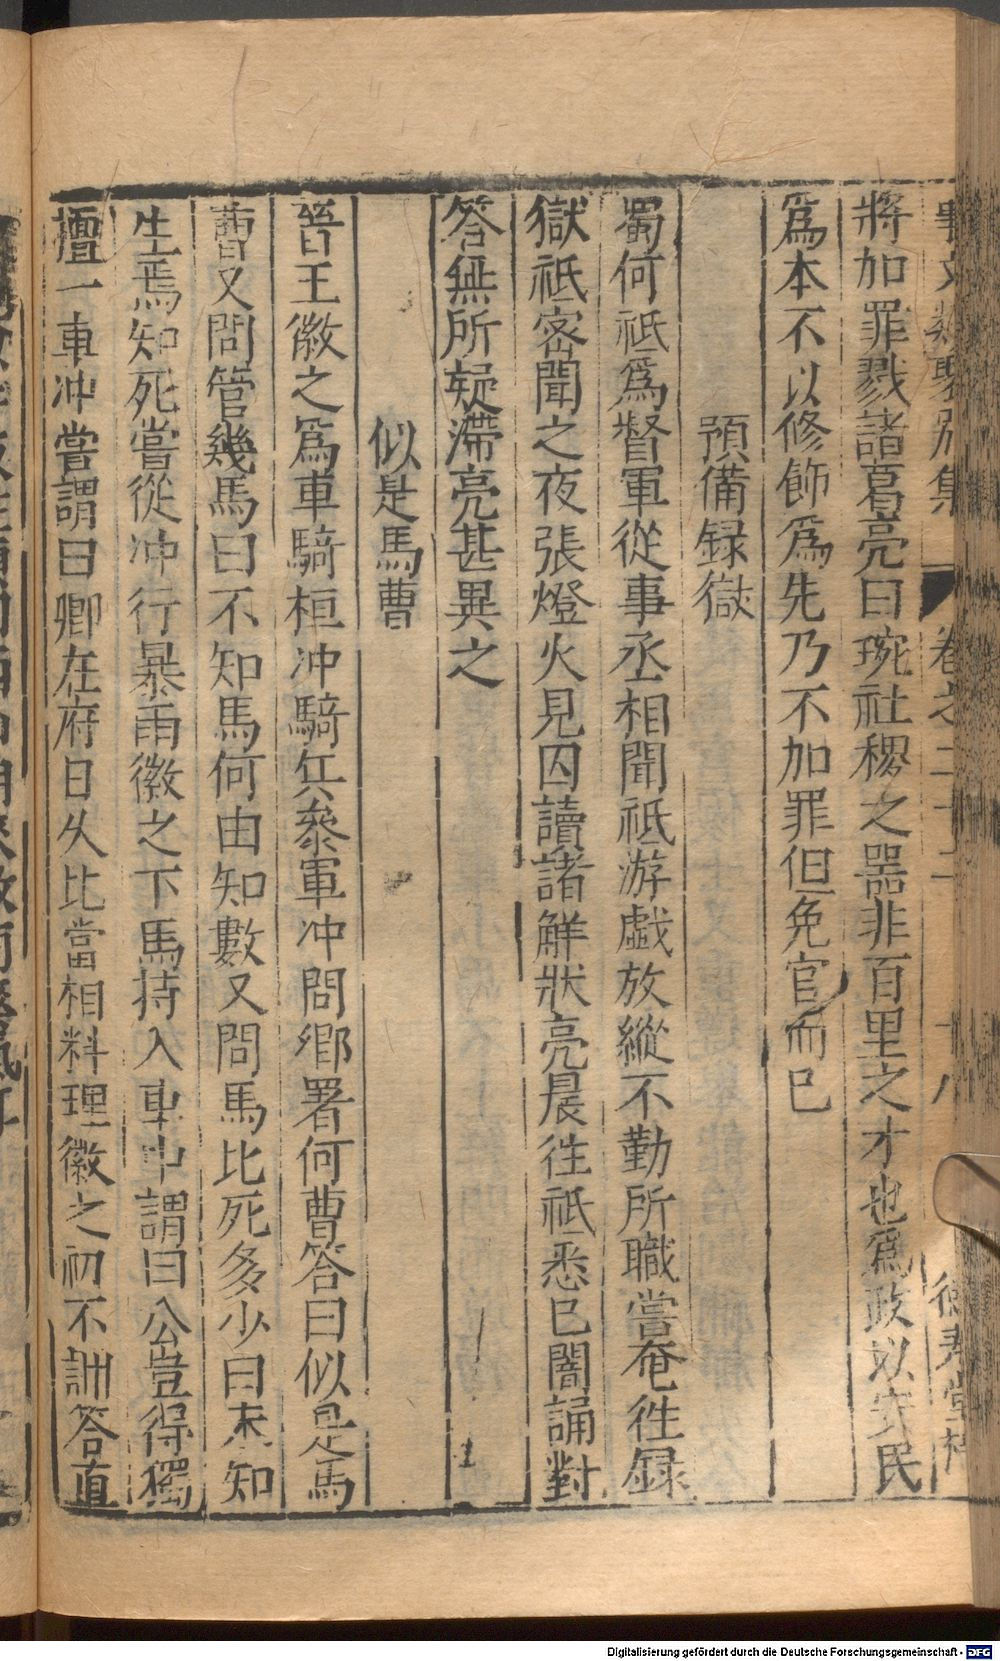 事文類聚別集 卷之二十二 十八 德壽堂梓
將加罪戮諸葛亮曰琬社稷之器非百里之才也爲政以安民
爲本不以修飾爲先乃不加罪但免官而已
預備録獄
蜀何祗爲督軍從事丞相聞祗游戲放縱不勤所職嘗奄徃録
獄祗宻聞之夜張燈火見囚讀諸觧狀亮晨徃祗悉已闇誦對
答無所疑滯亮甚異之
似是馬曹
晉王徽之爲車騎桓冲騎兵叅軍冲問卿署何曹答曰似是馬
曹又問管幾馬曰不知馬何由知數又問馬比死多少曰未知
生焉知死嘗從冲行暴雨徽之下馬持入車中謂曰公豈得獨
擅一車冲嘗謂曰卿在府日久比當相料理徽之初不訓答直
Digitalisierung gefördert durch die Deutsche Forschungsgemeinschaft - DFG